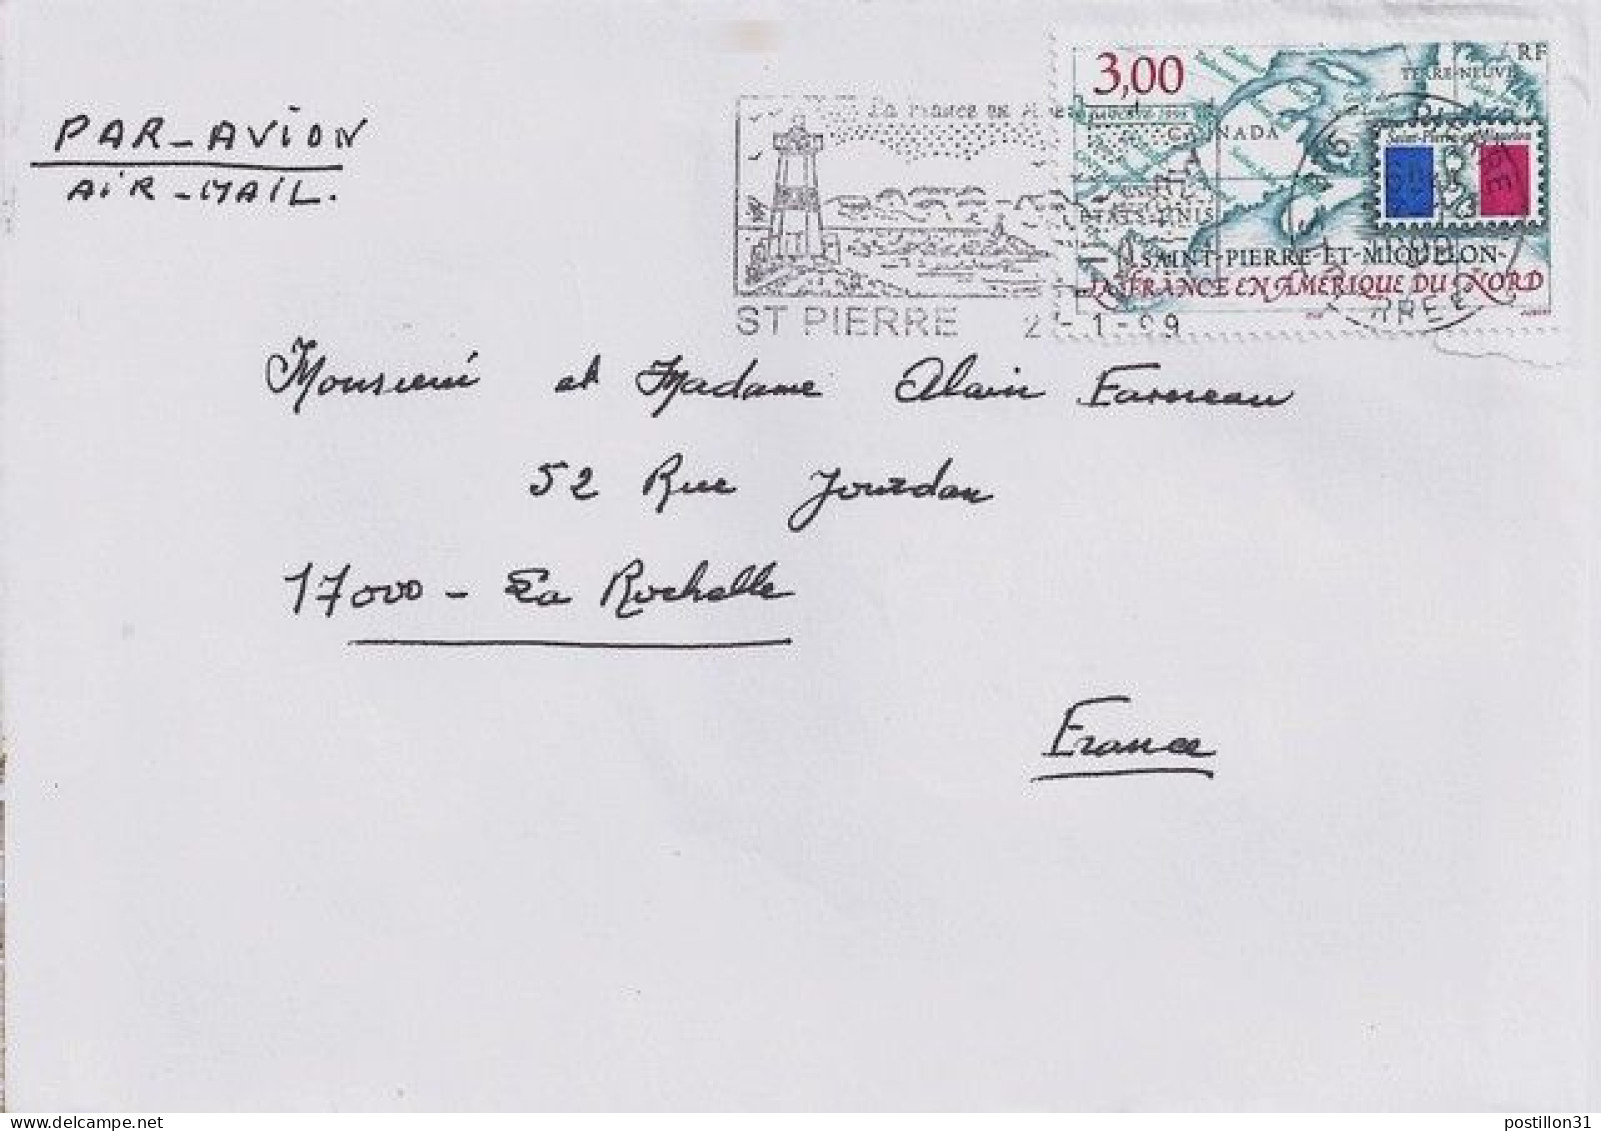 PAR-AVION
AIR-MAIL.
3,00
RF
TERRE-NEUVE
CANADA
Saint-Pierre et Miquelon
ÉTATS-UNIS
SAINT-PIERRE-ET-MIQUELON-
LA FRANCE EN AMÉRIQUE DU NORD
La France en
ST PIERRE
-1-99
Monsieur et Madame Alain
52 Rue Jourdan
17000 - La Rochelle
France
postillon31